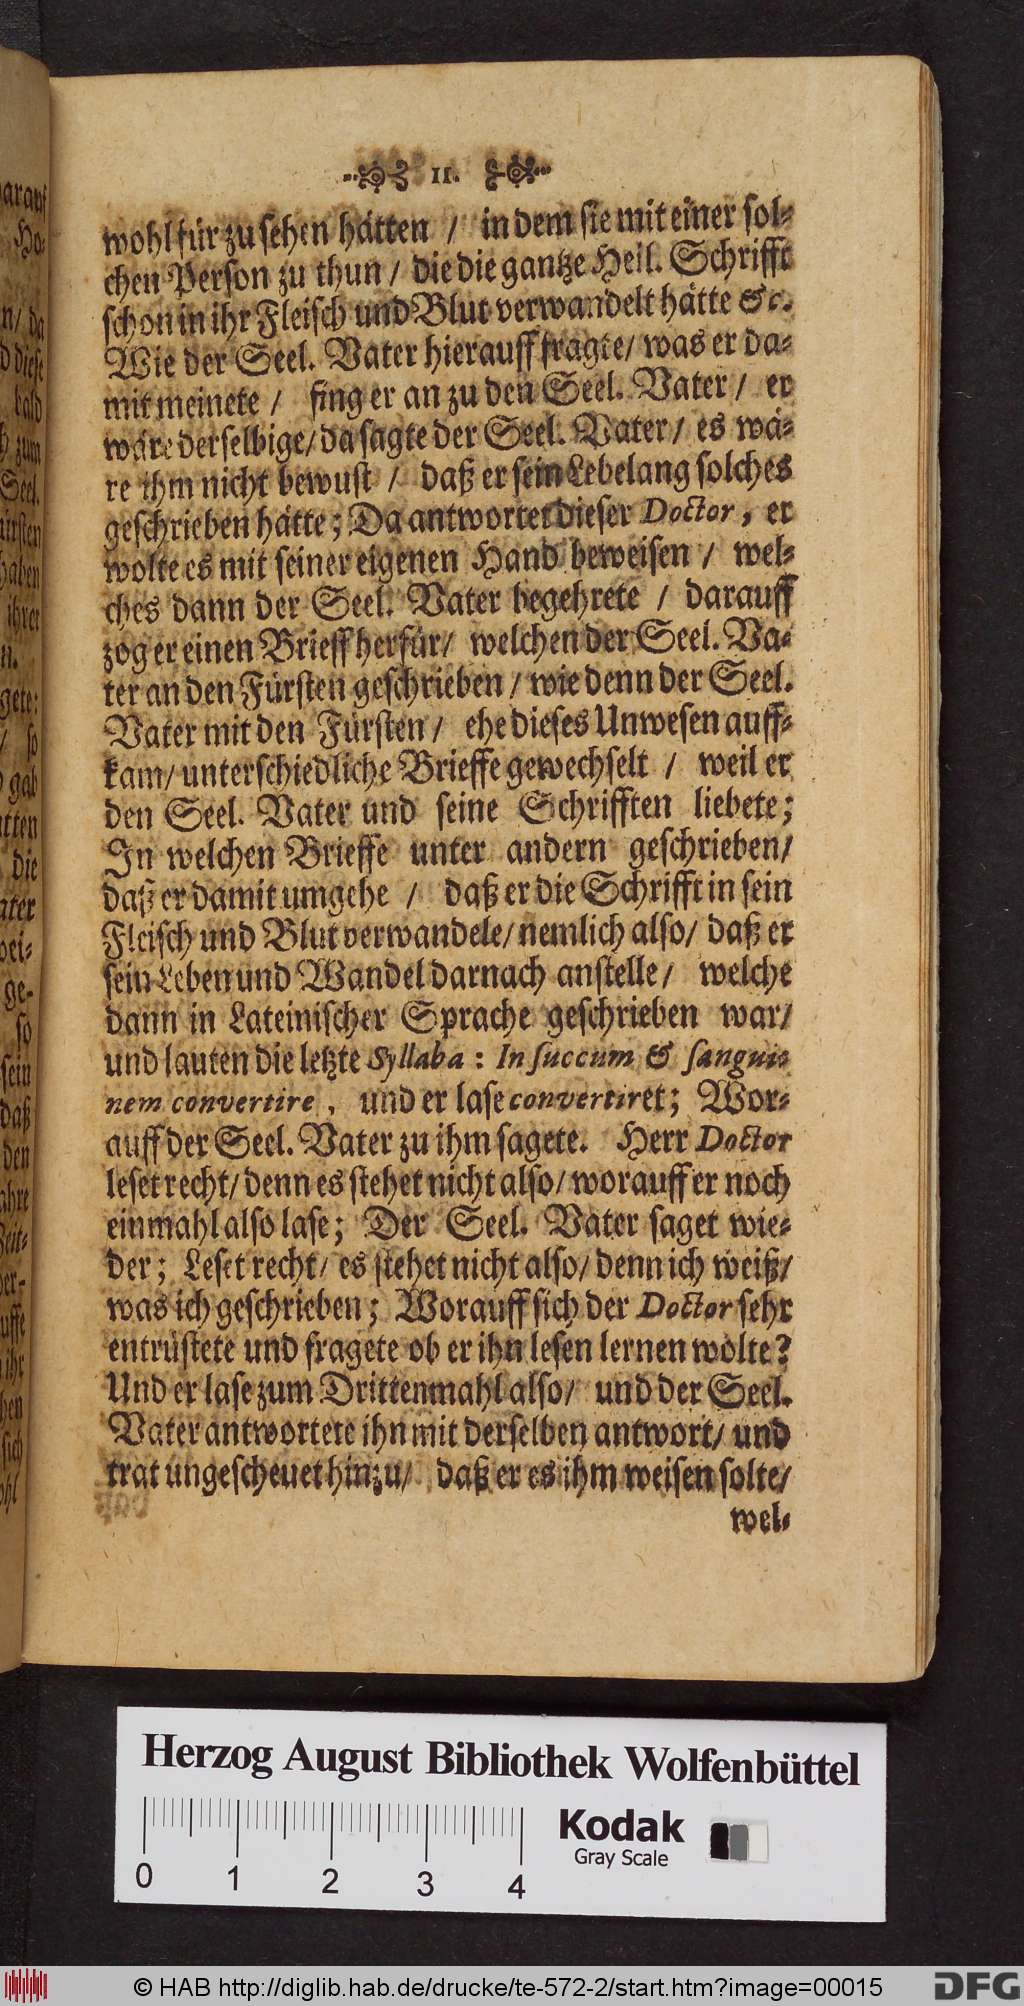 11.
wohl für zu sehen hätten / in dem sie mit einer sol-
chen Person zu thun / die die gantze Heil. Schrifft
schon in ihr Fleisch und Blut verwandelt hätte &c.
Wie der Seel. Vater hierauff fragte / was er da-
mit meinete / fing er an zu den Seel. Vater / er
wäre derselbige / da sagte der Seel. Vater / es wä-
re ihm nicht bewust / daß er sein Lebelang solches
geschrieben hätte; Da antwortet dieser Doctor, er
wolte es mit seiner eigenen Hand beweisen / wel-
ches dann der Seel. Vater begehrete / darauff
zog er einen Brieff herfür / welchen der Seel. Va-
ter an den Fürsten geschrieben / wie denn der Seel.
Vater mit den Fürsten / ehe dieses Unwesen auff-
kam / unterschiedliche Brieffe gewechselt / weil er
den Seel. Vater und seine Schrifften liebete;
In welchen Brieffe unter andern geschrieben /
daß er damit umgehe / daß er die Schrifft in sein
Fleisch und Blut verwandele / nemlich also / daß er
sein Leben und Wandel darnach anstelle / welche
dann in Lateinischer Sprache geschrieben war /
und lauten die letzte Syllaba: In succum & sangui-
nem convertire, und er lase convertiret; Wor-
auff der Seel. Vater zu ihm sagete. Herr Doctor
leset recht / denn es stehet nicht also / worauff er noch
einmahl also lase; Der Seel. Vater saget wie-
der; Leset recht / es stehet nicht also / denn ich weiß /
was ich geschrieben; Worauff sich der Doctor sehr
entrüstete und fragete ob er ihn lesen lernen wolte?
Und er lase zum Drittenmahl also / und der Seel.
Vater antwortete ihn mit derselben antwort / und
trat ungescheuet hinzu / daß er es ihm weisen solte /
wel-
Herzog August Bibliothek Wolfenbüttel
0 1 2 3 4
Kodak
Gray Scale
© HAB http://diglib.hab.de/drucke/te-572-2/start.htm?image=00015
DFG